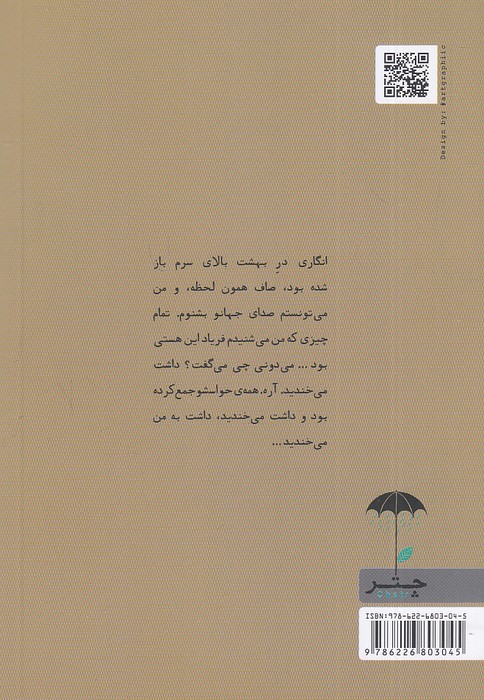 Design by: #artgraphiic
انگاری درِ بهشت بالای سرم باز
شده بود، صاف همون لحظه، و من
می‌تونستم صدای جهانو بشنوم. تمام
چیزی که من می‌شنیدم فریاد این هستی
بود ... می‌دونی چی می‌گفت؟ داشت
می‌خندید. آره. همه‌ی حواسشو جمع کرده
بود و داشت می‌خندید، داشت به من
می‌خندید ...
چتر
Chatr
ISBN: 978-622-6803-04-5
9 786226 803045